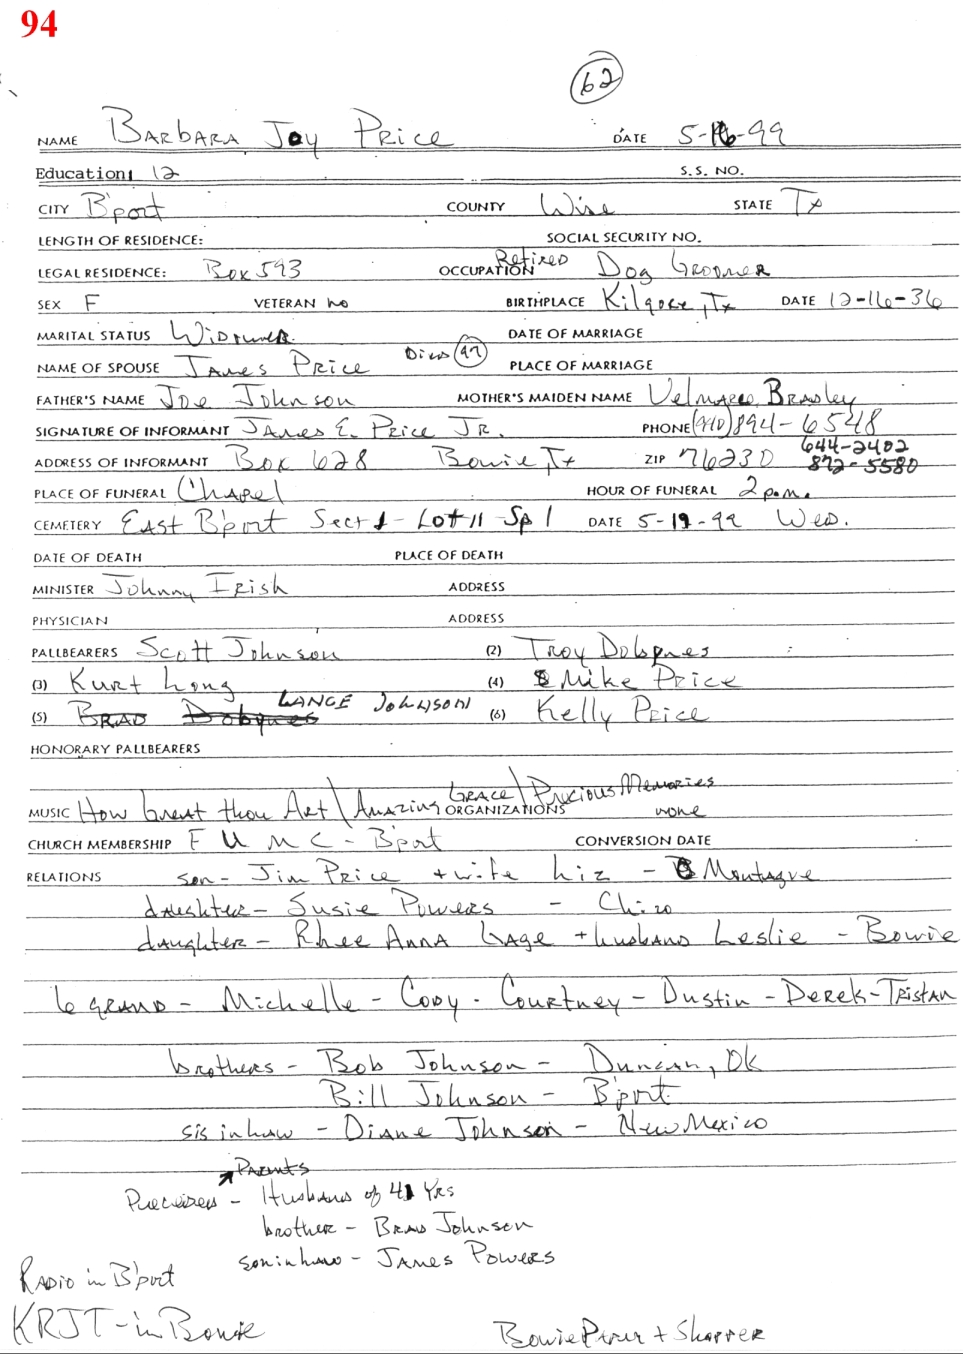 94
62
NAME Barbara Joy Price DATE 5-16-99
Education: 12 S.S. NO.
CITY B'port COUNTY Wise STATE Tx
LENGTH OF RESIDENCE: SOCIAL SECURITY NO.
LEGAL RESIDENCE: Box 593 OCCUPATION Retired Dog Groomer
SEX F VETERAN no BIRTHPLACE Kilgore, Tx DATE 12-16-36
MARITAL STATUS Widower DATE OF MARRIAGE
NAME OF SPOUSE James Price Died 97 PLACE OF MARRIAGE
FATHER'S NAME Joe Johnson MOTHER'S MAIDEN NAME Bradley
SIGNATURE OF INFORMANT James E. Price Jr. PHONE (940) 894-6548
ADDRESS OF INFORMANT Box 628 Bowie, Tx ZIP 76230 644-2402
872-5580
PLACE OF FUNERAL Chapel HOUR OF FUNERAL 2 p.m.
CEMETERY East B'port Sect 1 - Lot 11 - Sp 1 DATE 5-19-99 Wed.
DATE OF DEATH PLACE OF DEATH
MINISTER Johnny Irish ADDRESS
PHYSICIAN ADDRESS
PALLBEARERS Scott Johnson (2) Troy Dobynes
(3) Kurt Long (4) Mike Price
(5) Brad Dobynes Lance Johnson (6) Kelly Price
HONORARY PALLBEARERS
MUSIC How Great thou Art \ Amazing Grace \ Precious Memories ORGANIZATIONS none
CHURCH MEMBERSHIP F U M C - B'port CONVERSION DATE
RELATIONS son - Jim Price + wife Liz - Montague
daughter - Susie Powers - Chico
daughter - Rhee Anna Gage + husband Leslie - Bowie
6 grand - Michelle - Cody - Courtney - Dustin - Derek - Tristan
brothers - Bob Johnson - Duncan, OK
Bill Johnson - B'port
sis in law - Diane Johnson - New Mexico
Parents
Preceded - Husband of 41 yrs
brother - Brad Johnson
son in law - James Powers
Radio in B'port
KRJT - in Bowie
Bowie Paper + Shopper